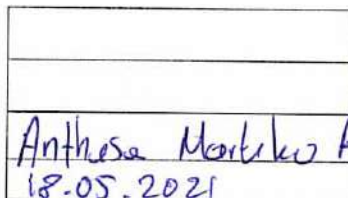 Anthesa Mortuko
18.05.2021